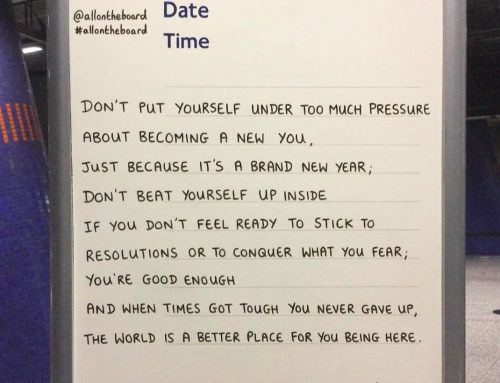 @allontheboard
#allontheboard
Date
Time
DON'T PUT YOURSELF UNDER TOO MUCH PRESSURE
ABOUT BECOMING A NEW YOU,
JUST BECAUSE IT'S A BRAND NEW YEAR;
DON'T BEAT YOURSELF UP INSIDE
IF YOU DON'T FEEL READY TO STICK TO
RESOLUTIONS OR TO CONQUER WHAT YOU FEAR;
YOU'RE GOOD ENOUGH
AND WHEN TIMES GOT TOUGH YOU NEVER GAVE UP,
THE WORLD IS A BETTER PLACE FOR YOU BEING HERE.